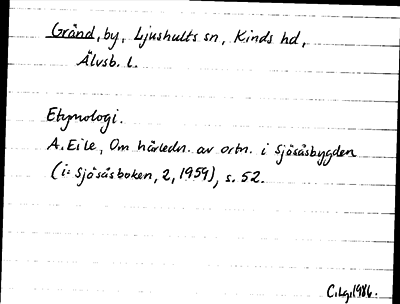 Gränd, by, Ljushults sn, Kinds hd,
Älvsb. l.
Etymologi.
A. Eile, Om härledn. av ortn. i Sjösåsbygden
(i: Sjösåsboken, 2, 1959), s. 52.
C.Lg. 1986.